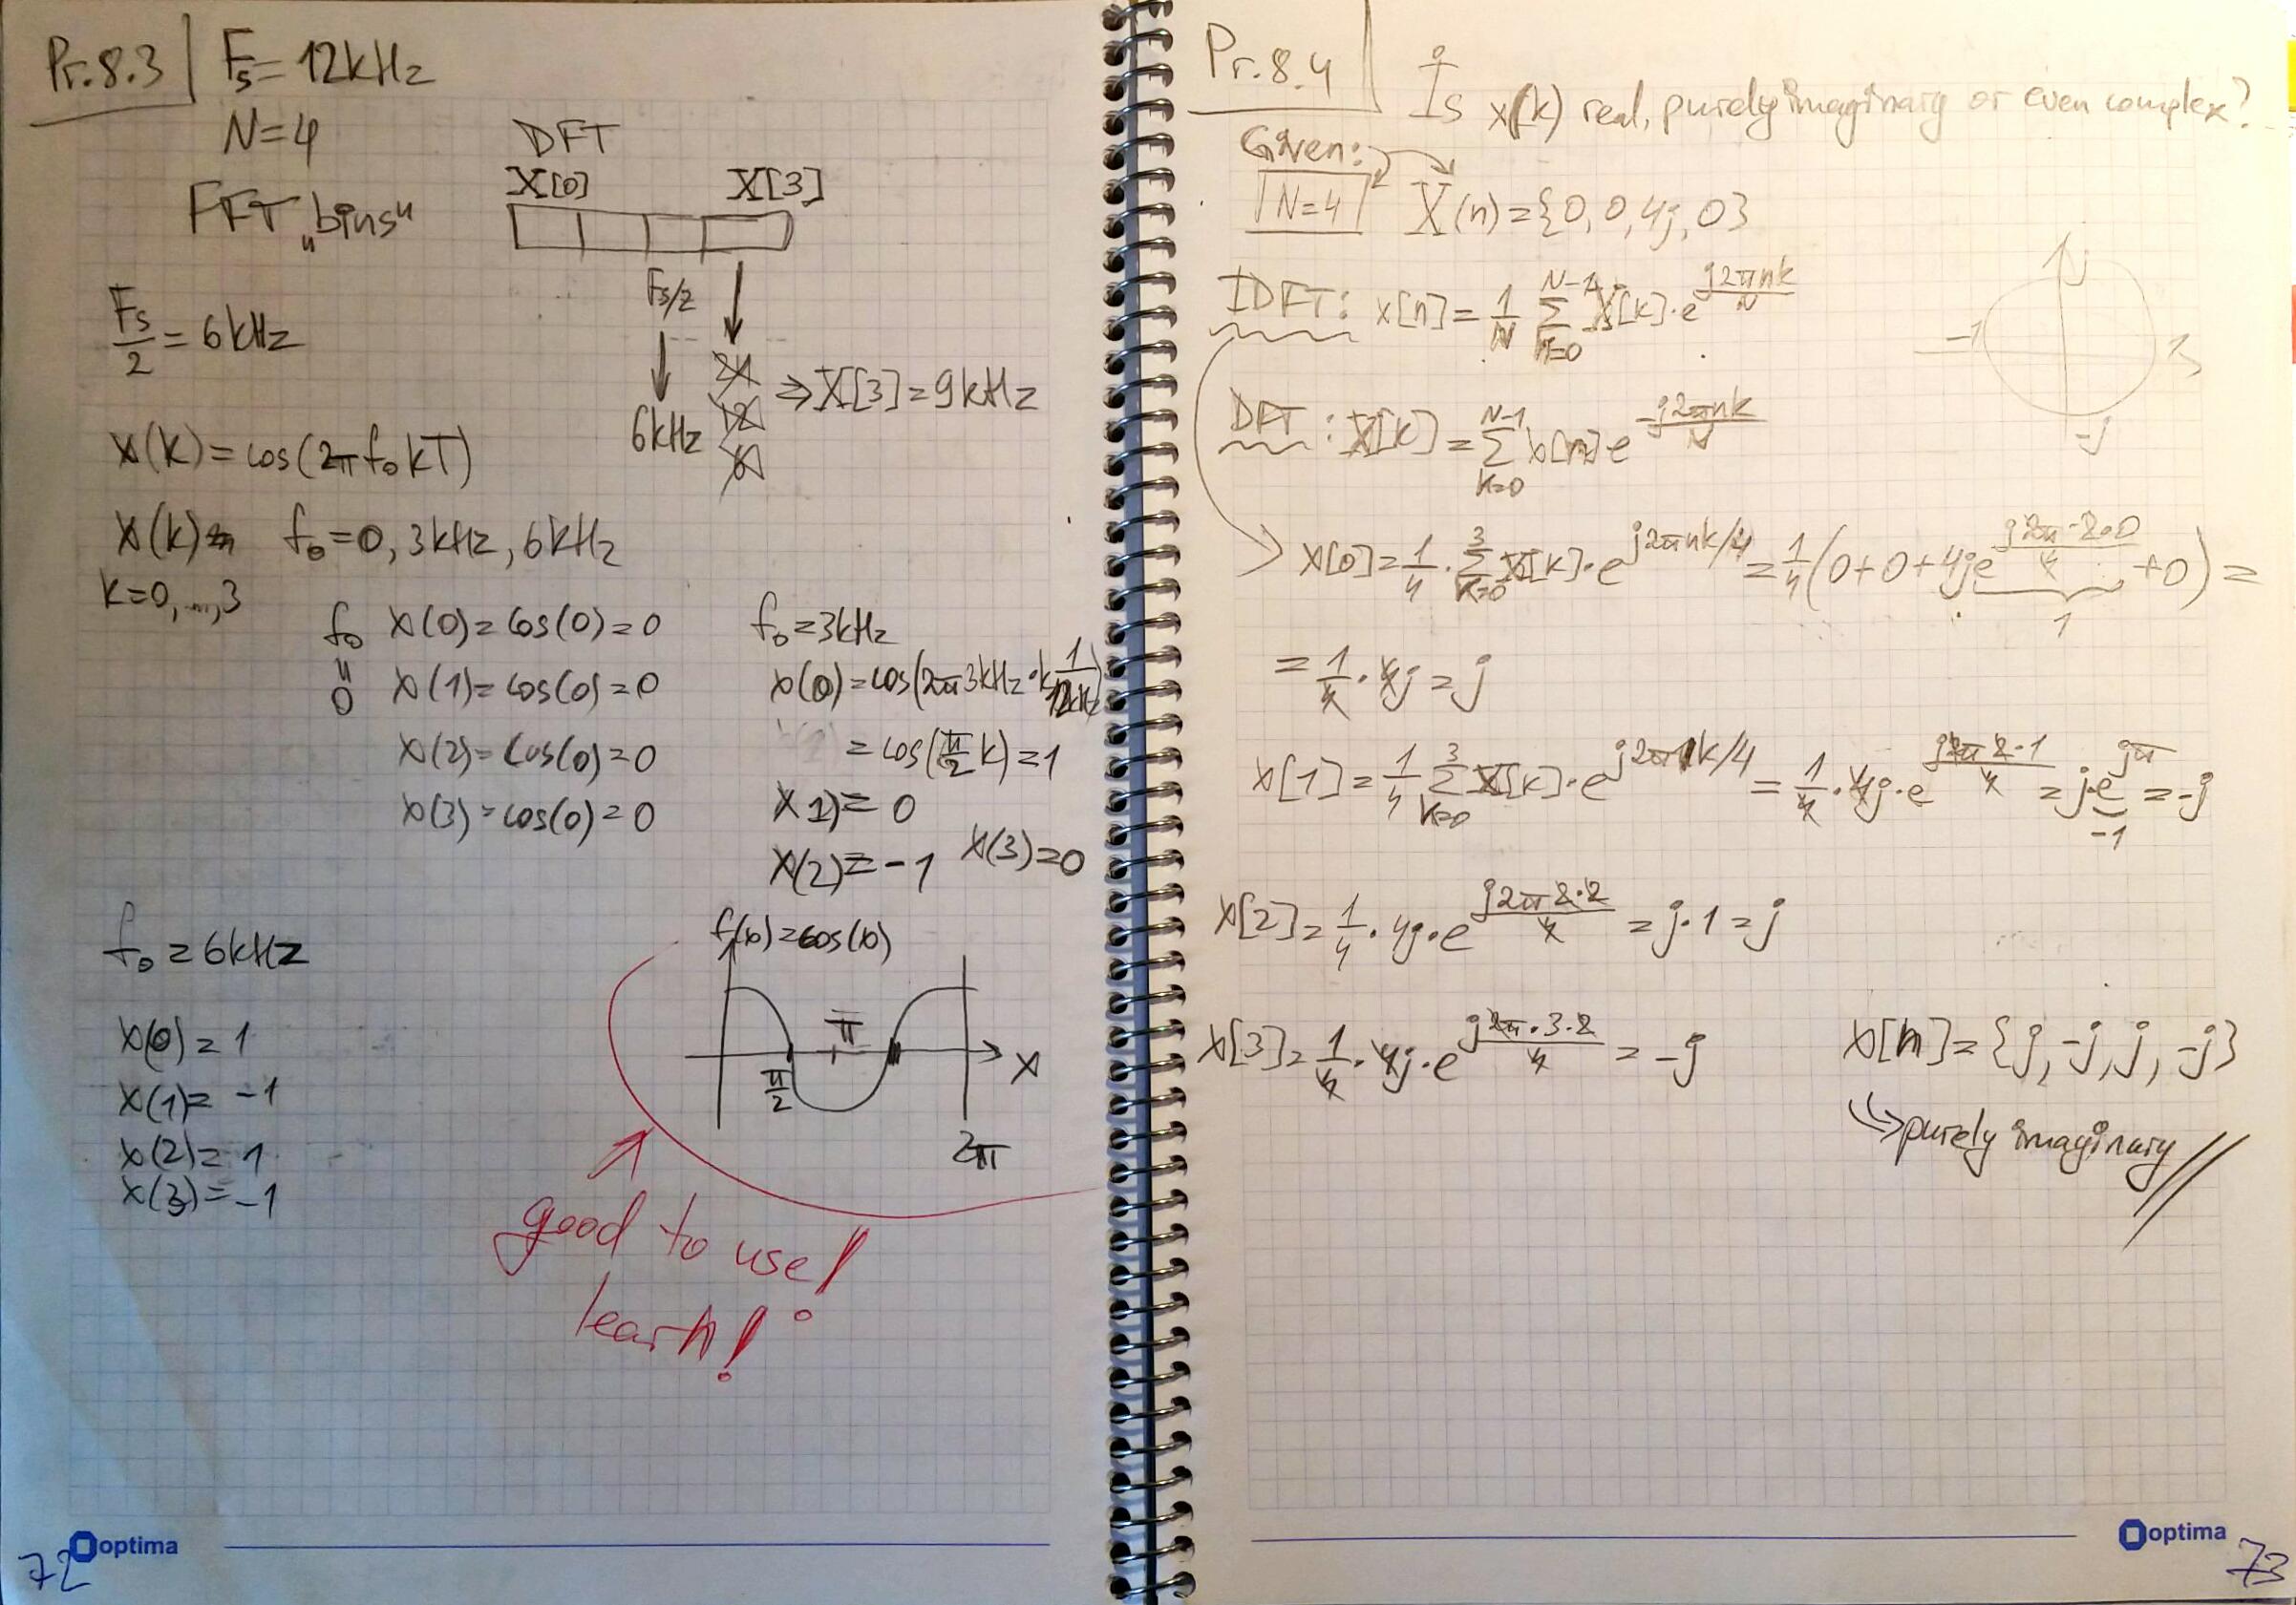 Pr.8.3 | Fs = 12kHz
N=4
FFT „bins"
DFT
X[0] X[3]
Fs/2
6kHz
24
12
6
=> X[3] = 9kHz
Fs/2 = 6kHz
x(k) = cos(2π f₀ kT)
x(k) f₀ = 0, 3kHz, 6kHz
k=0,...,3
f₀ = 0
x(0) = cos(0) = 0
x(1) = cos(0) = 0
x(2) = cos(0) = 0
x(3) = cos(0) = 0
f₀ = 3kHz
x(0) = cos(2π 3kHz · k 1/12kHz)
= cos(π/2 k) = 1
x(1) = 0
x(2) = -1 x(3) = 0
f₀ = 6kHz
x(0) = 1
x(1) = -1
x(2) = 1
x(3) = -1
f(x) = cos(x)
π
π/2
x
2π
good to use!
learn!
optima
72
Pr.8.4
Is x(k) real, purely imaginary or even complex?
Given:
N=4 X(n) = {0, 0, 4j, 0}
j
-1 1
-j
IDFT: x[n] = 1/N Σ_{k=0}^{N-1} X[k] · e^{j2πnk/N}
DFT: X[k] = Σ_{k=0}^{N-1} x[n] e^{-j2πnk/N}
x[0] = 1/4 · Σ_{k=0}^{3} X[k] · e^{j2πnk/4} = 1/4 (0+0+4j e^{j2π·2·0/4} +0) =
1
= 1/4 · 4j = j
x[1] = 1/4 Σ_{k=0}^{3} X[k] · e^{j2π1k/4} = 1/4 · 4j · e^{j2π2·1/4} = j·e^{jπ} = -j
-1
x[2] = 1/4 · 4j · e^{j2π2·2/4} = j·1 = j
x[3] = 1/4 · 4j · e^{j2π·3·2/4} = -j
x[n] = {j, -j, j, -j}
purely imaginary
optima
73